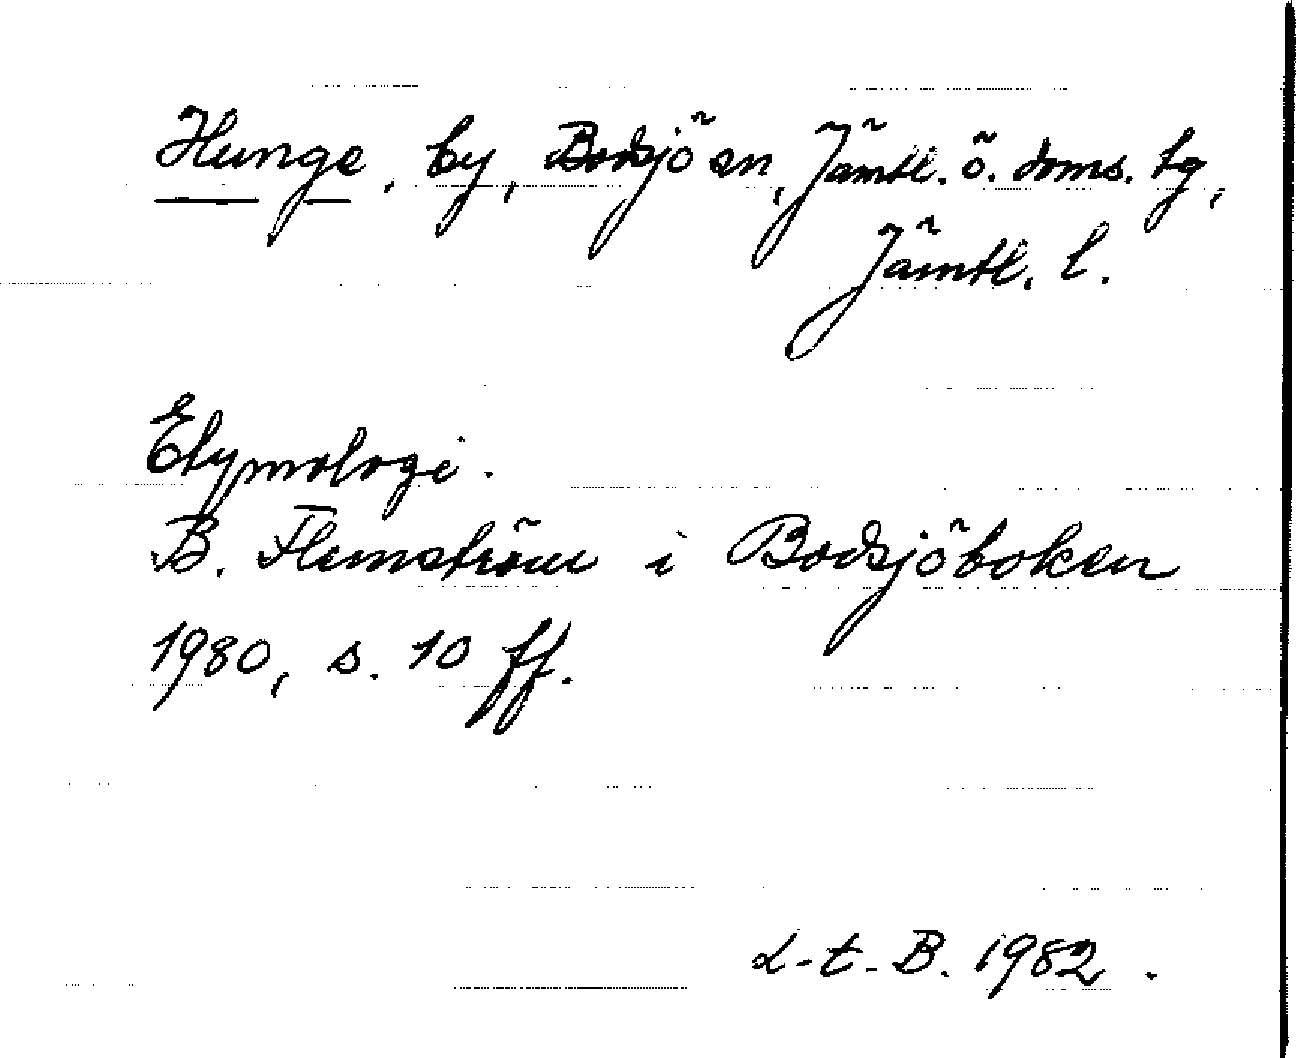 Hunge, by, Bodsjö sn, Jämtl. ö. doms. tg,
Jämtl. l.
Etymologi.
B. Flemström i Bodsjöboken
1980, s. 10 ff.
L-t. B. 1982.